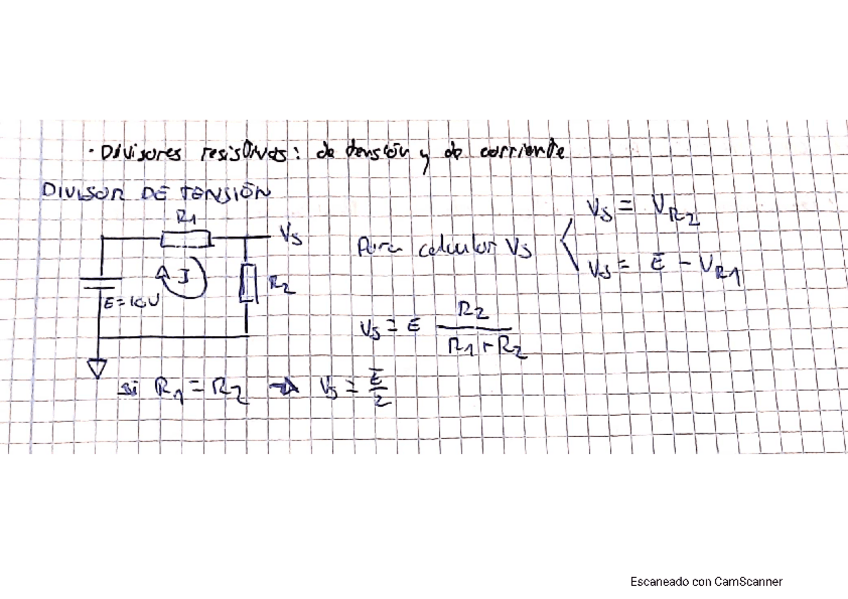 · Divisores resistivos: de tensión y de corriente
DIVISOR DE TENSIÓN
R1
Vs
R2
I
E=10V
Para calcular Vs
Vs = VR2
Vs = E - VR1
Vs = E R2 / R1+R2
si R1 = R2 → Vs = E/2
Escaneado con CamScanner